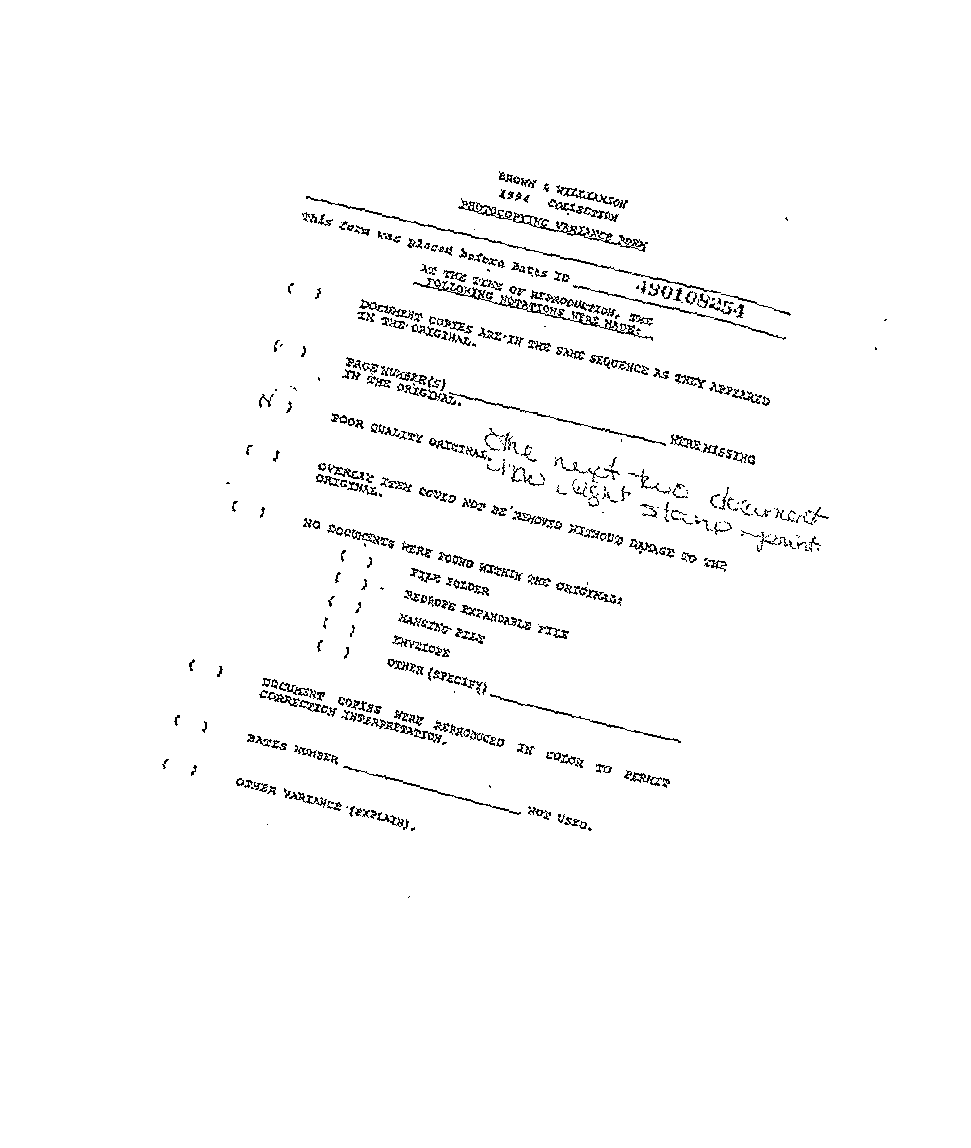 BROWN & WILLIAMSON
1994 COLLECTION
PHOTOCOPYING VARIANCE FORM
This form was placed before Bates ID 490109254
AT THE TIME OF REPRODUCTION, THE
FOLLOWING NOTATIONS WERE MADE:
( ) DOCUMENT COPIES ARE IN THE SAME SEQUENCE AS THEY APPEARED
IN THE ORIGINAL.
( ) PAGE NUMBER(S) WERE MISSING
IN THE ORIGINAL.
( ) POOR QUALITY ORIGINAL. The next two document
light stamp print
( ) OVERLAY ITEM COULD NOT BE REMOVED WITHOUT DAMAGE TO THE
ORIGINAL.
( ) NO DOCUMENTS WERE FOUND WITHIN THE ORIGINAL:
( ) FILE FOLDER
( ) REDROPE EXPANDABLE FILE
( ) HANGING FILE
( ) ENVELOPE
( ) OTHER (SPECIFY)
( ) DOCUMENT COPIES WERE REPRODUCED IN COLOR TO PERMIT
CORRECTION INTERPRETATION.
( ) BATES NUMBER NOT USED.
( ) OTHER VARIANCE (EXPLAIN).